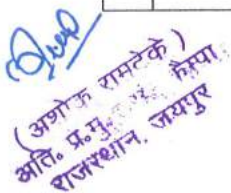 (अशोक रामटेके)
अति. प्र.मु. कैम्पा
राजस्थान, जयपुर